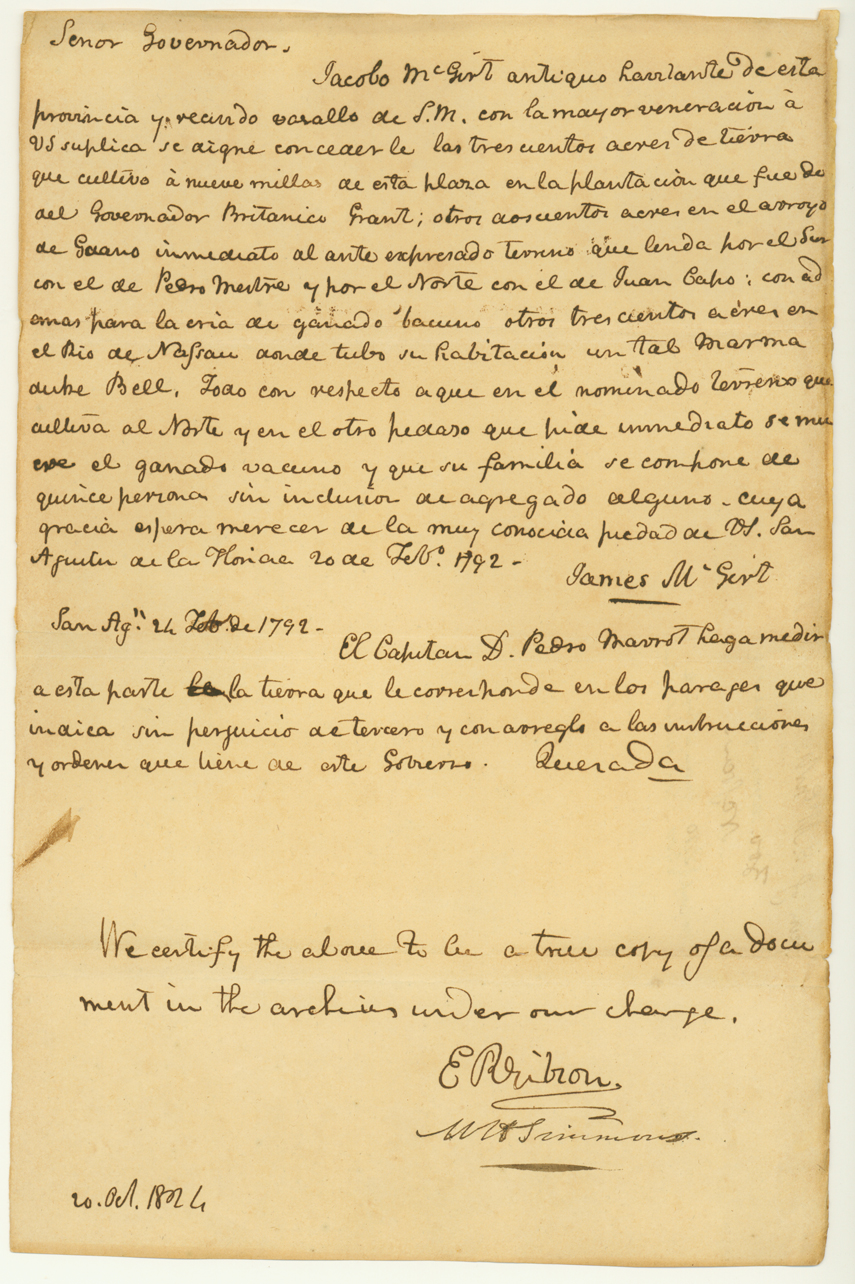 Senor Governador.
Jacobo Mc Girt antiquo havitante de esta
provincia y recivido vasallo de S.M. con la mayor veneracion à
VS suplica se digne concederle las trescientos acres de tierra
que cultivo à nueve millas de esta plaza en la plantacion que fue de
del Governador Britanico Grant; otros doscientos acres en el arroyo
de Guano inmediato al ante expresado terreno que linda por el Sur
con el de Pedro Mestre y por el Norte con el de Juan Capo: con ad
emas para la cria de ganado bacuno otros trescientos acres en
el Rio de Nassau donde tubo su habitación un tal Marma
duke Bell. Todo con respecto a que en el nominado terreno que
cultiva al Norte y en el otro pedaso que pide inmediato se mu
ere el ganado vacuno y que su familia se compone de
quince personas sin inclusion de agregado alguno. cuya
gracia espera merecer de la muy conocida piedad de VS. San
Agustin de la Florida 20 de Febo. 1792 -
James Mc Girt
San Agn. 24 Febo. de 1792 -
El Capitan D. Pedro Marrot haga medir
a esta parte la tierra que le corresponde en los parages que
indica sin perjuicio de tercero y con arreglo a las instrucciones
y ordenes que tiene de este Gobierno. Quesada
We certify the above to be a true copy of a docu
ment in the archives under our charge.
E R Gibson.
W H Simmons.
20. Oct. 1824